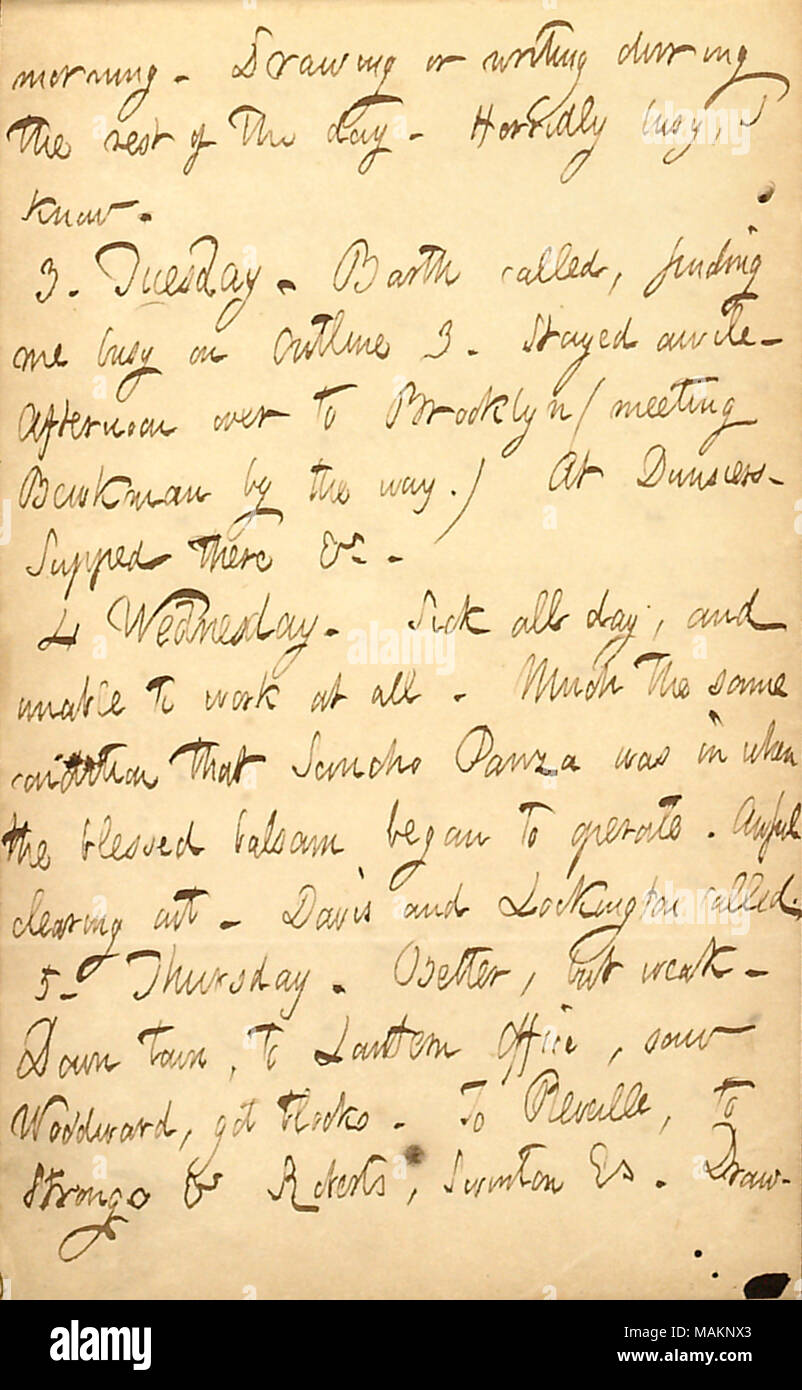 morning. Drawing or writing during
the rest of the day. Horridly busy, I
know.
3. Tuesday. Barth called, finding
me busy on Outline 3. Stayed awile.
Afternoon over to Brooklyn (meeting
Beekman by the way.) At Dunsiers.
Supped there &c.
4 Wednesday. Sick all day, and
unable to work at all. Much the same
condition that Sancho Panza was in when
the blessed balsam began to operate. Awful
clearing out. Davis and Lockington called.
5. Thursday. Better, but weak.
Down town, to Lantern Office, saw
Woodward, got blocks. To Reveille, to
Strongs & Roberts, Swinton &c. Draw-
alamy
alamy
Image ID: MAKNX3
www.alamy.com